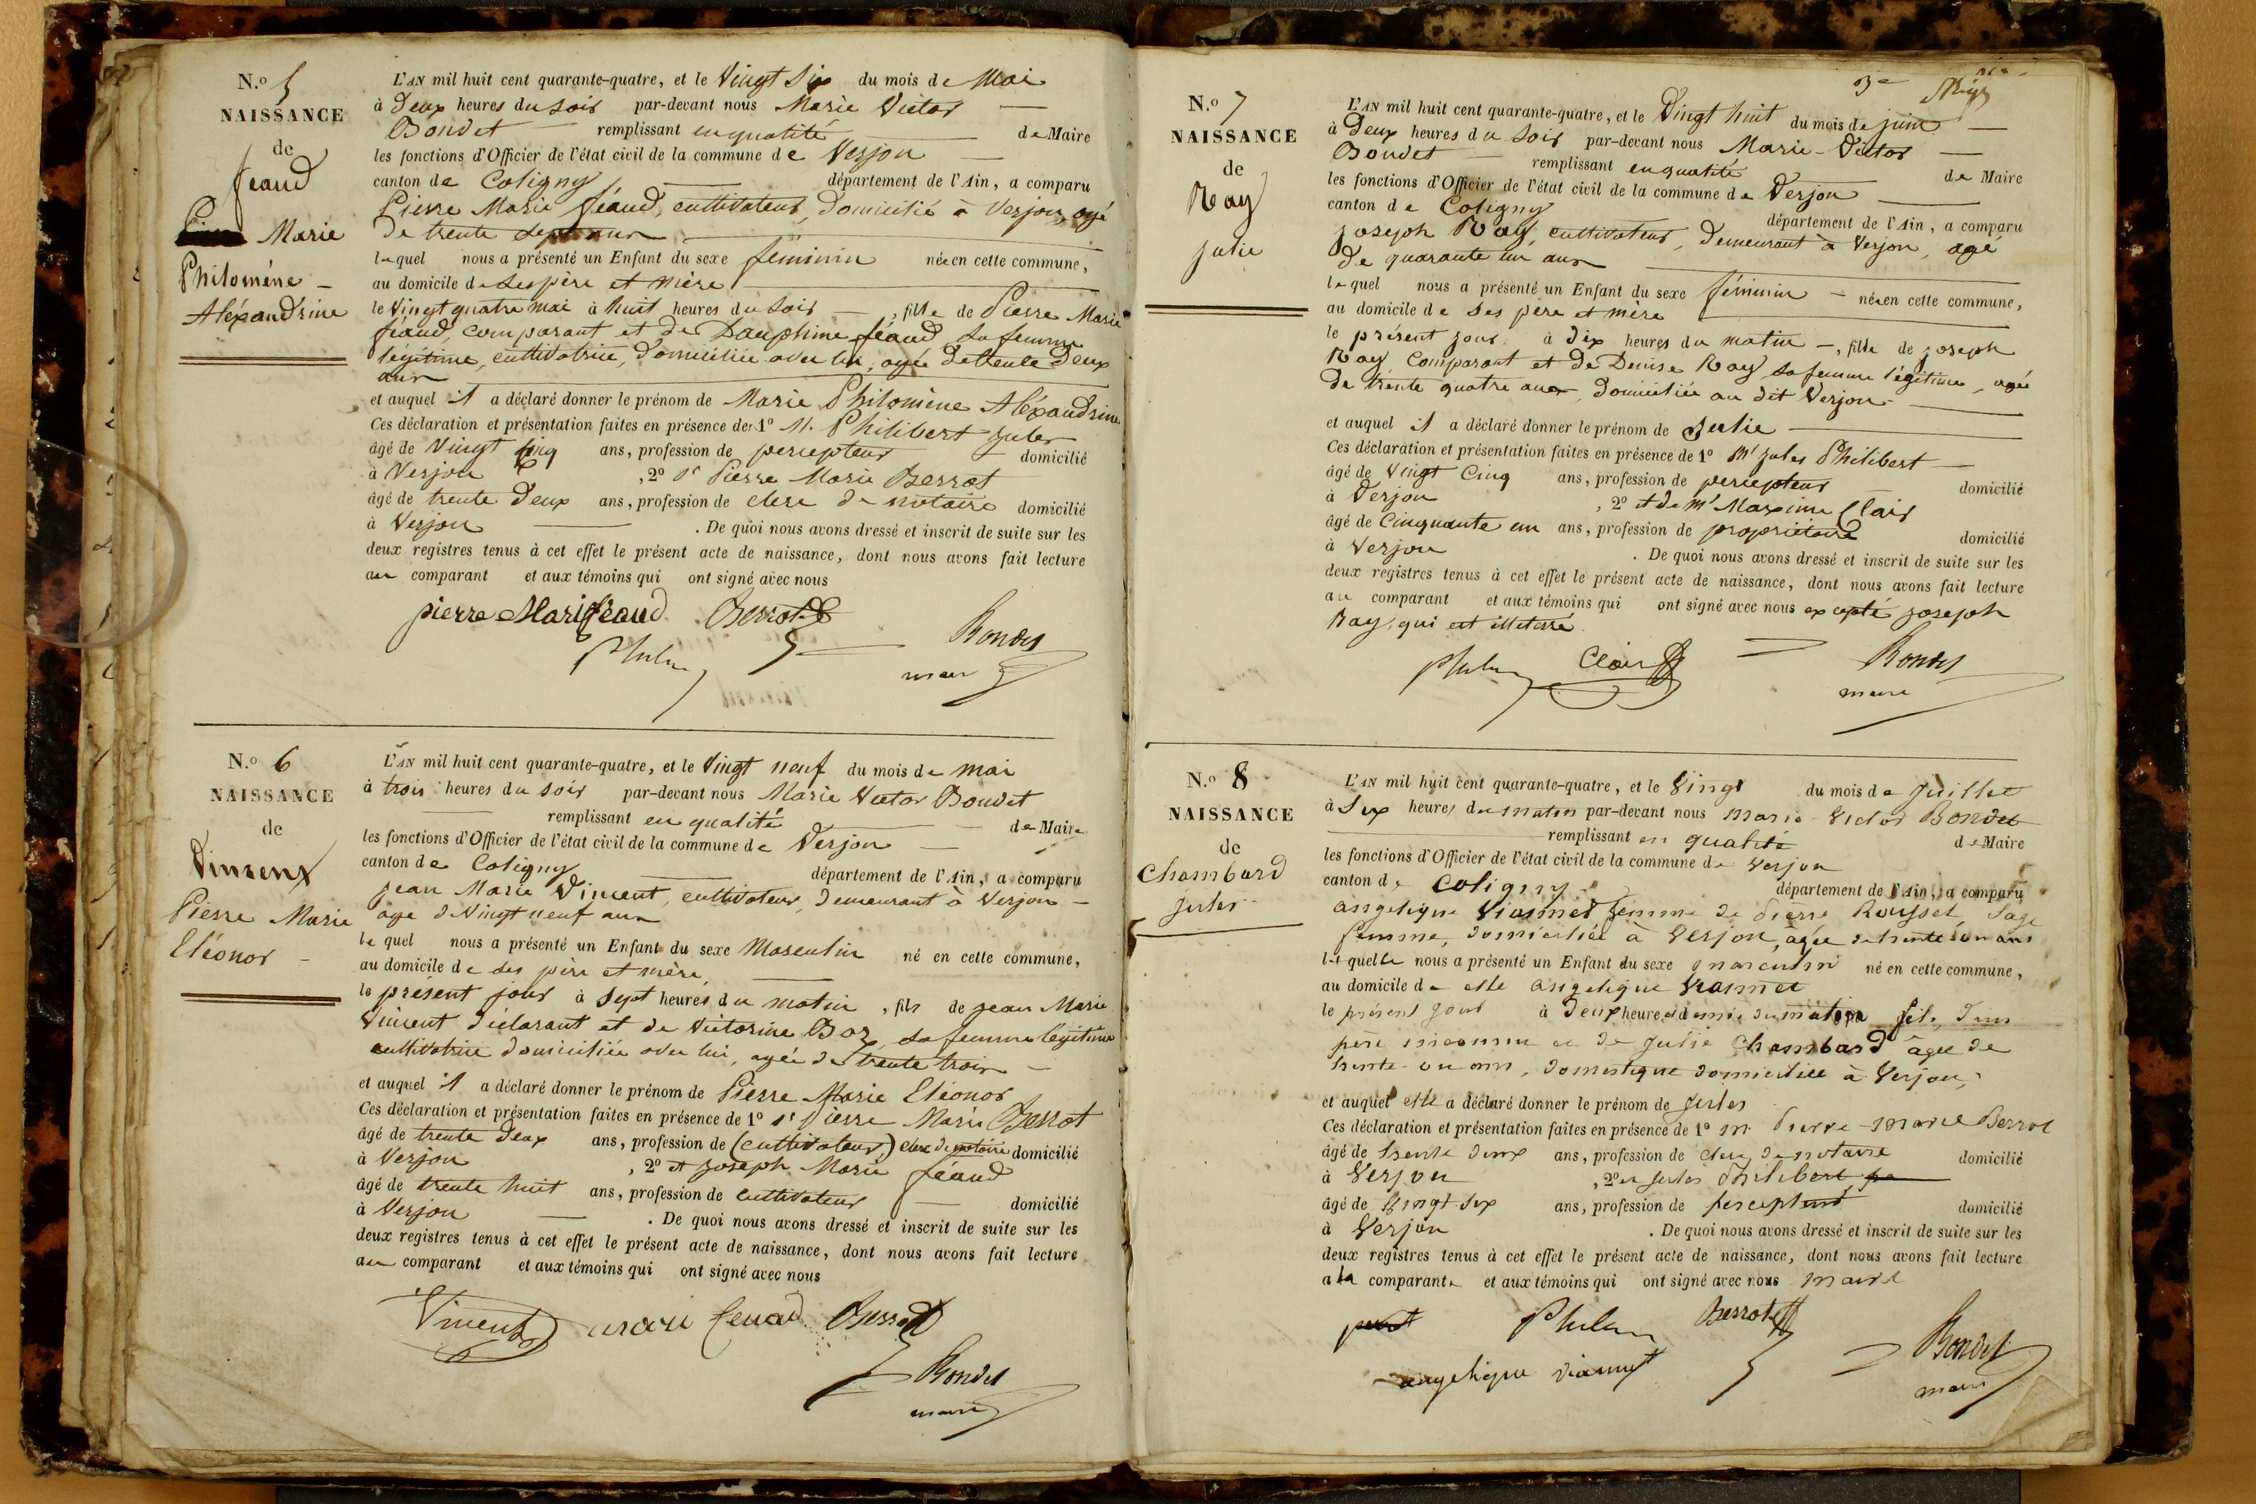 N.º 5
NAISSANCE
de
féaud
Marie
Philomène –
Aléxandrine
L'AN mil huit cent quarante-quatre, et le Vingt Six du mois de Mai
à Deux heures du soir par-devant nous Marie Victor
Bondet remplissant en qualité de Maire
les fonctions d'Officier de l'état civil de la commune de Verjon
canton de Coligny département de l'Ain, a comparu
Pierre Marie féaud, cultivateur, Domicilié à Verjon, agé
De trente sept ans
lequel nous a présenté un Enfant du sexe féminin née en cette commune,
au domicile de ses père et mère
le Vingt quatre mai à huit heures du soir, fille de Pierre Marie
féaud, comparant et de Dauphine féaud, sa femme
légitime, cultivatrice, Domiciliée avec lui, agée De trente Deux
ans
et auquel il a déclaré donner le prénom de Marie Philomène Aléxandrine
Ces déclaration et présentation faites en présence de: 1º M. Philibert Jules
âgé de Vingt Cinq ans, profession de percepteur domicilié
à Verjon, 2º Sr Pierre Marie Berrot
âgé de trente Deux ans, profession de clerc de notaire domicilié
à Verjon. De quoi nous avons dressé et inscrit de suite sur les
deux registres tenus à cet effet le présent acte de naissance, dont nous avons fait lecture
au comparant et aux témoins qui ont signé avec nous
pierre Marie féaud Berrot
Bondet
maire
N.º 6
NAISSANCE
de
Vincent
Pierre Marie
Eléonor –
L'AN mil huit cent quarante-quatre, et le Vingt neuf du mois de mai
à trois heures du soir par-devant nous Marie Victor Bondet
remplissant en qualité de Maire
les fonctions d'Officier de l'état civil de la commune de Verjon
canton de Coligny département de l'Ain, a comparu
Jean Marie Vincent, cultivateur, Demeurant à Verjon –
agé de Vingt neuf ans
lequel nous a présenté un Enfant du sexe Masculin né en cette commune,
au domicile de ses père et mère
le présent jour à Sept heures du matin, fils de Jean Marie
Vincent déclarant et de Victorine Boz, sa femme légitime
cultivatrice domiciliée avec lui, agée de trente trois –
et auquel il a déclaré donner le prénom de Pierre Marie Eléonor
Ces déclaration et présentation faites en présence de 1º Sr Pierre Marie Berrot
âgé de trente Deux ans, profession de (cultivateur) clerc de notaire domicilié
à Verjon, 2º et Joseph Marie féaud
âgé de trente huit ans, profession de cultivateur domicilié
à Verjon. De quoi nous avons dressé et inscrit de suite sur les
deux registres tenus à cet effet le présent acte de naissance, dont nous avons fait lecture
au comparant et aux témoins qui ont signé avec nous
Vincent Berrot
Bondet
maire
3e
N.º 7
NAISSANCE
de
Ray
Julie
L'AN mil huit cent quarante-quatre, et le Vingt huit du mois de juin
à Deux heures du soir par-devant nous Marie-Victor
Bondet remplissant en qualité de Maire
les fonctions d'Officier de l'état civil de la commune de Verjon
canton de Coligny département de l'Ain, a comparu
Joseph Ray, cultivateur, Demeurant à Verjon, agé
De quarante un ans
lequel nous a présenté un Enfant du sexe féminin – née en cette commune,
au domicile de ses père et mère
le présent jour à Dix heures du matin –, fille de Joseph
Ray Comparant et de Denise Ray, sa femme légitime, agée
de trente quatre ans, Domiciliée au dit Verjon –
et auquel il a déclaré donner le prénom de Julie
Ces déclaration et présentation faites en présence de 1º Mr Jules Philibert
âgé de Vingt Cinq ans, profession de percepteur domicilié
à Verjon, 2º et de Mr Maxime Clair
âgé de Cinquante un ans, profession de propriétaire domicilié
à Verjon. De quoi nous avons dressé et inscrit de suite sur les
deux registres tenus à cet effet le présent acte de naissance, dont nous avons fait lecture
au comparant et aux témoins qui ont signé avec nous excepté Joseph
Ray, qui est illetterré
Clair Bondet
maire
N.º 8
NAISSANCE
de
Chambard
Jules
L'AN mil huit cent quarante-quatre, et le Vingt du mois de Juillet
à Six heures du matin par-devant nous Marie Victor Bondet
remplissant en qualité de Maire
les fonctions d'Officier de l'état civil de la commune de Verjon
canton de Coligny département de l'Ain, a comparu
angelique Viannet femme de Pierre Rousset, Sage
femme, domiciliée à Verjon, âgée de trente un ans
laquelle nous a présenté un Enfant du sexe masculin né en cette commune,
au domicile de elle angelique Viannet
le présent jour à Deux heures et demie du matin fils d'un
père inconnu et de Julie Chambard âgée de
trente un ans, domestique domiciliée à Verjon,
et auquel elle a déclaré donner le prénom de Jules
Ces déclaration et présentation faites en présence de 1º M. Pierre-Marie Berrot
âgé de trente deux ans, profession de clerc de notaire domicilié
à Verjon, 2º et Jules Philibert
âgé de Vingt Six ans, profession de percepteur domicilié
à Verjon. De quoi nous avons dressé et inscrit de suite sur les
deux registres tenus à cet effet le présent acte de naissance, dont nous avons fait lecture
a la comparante et aux témoins qui ont signé avec nous maire
Berrot
Bondet
angelique viannet
maire